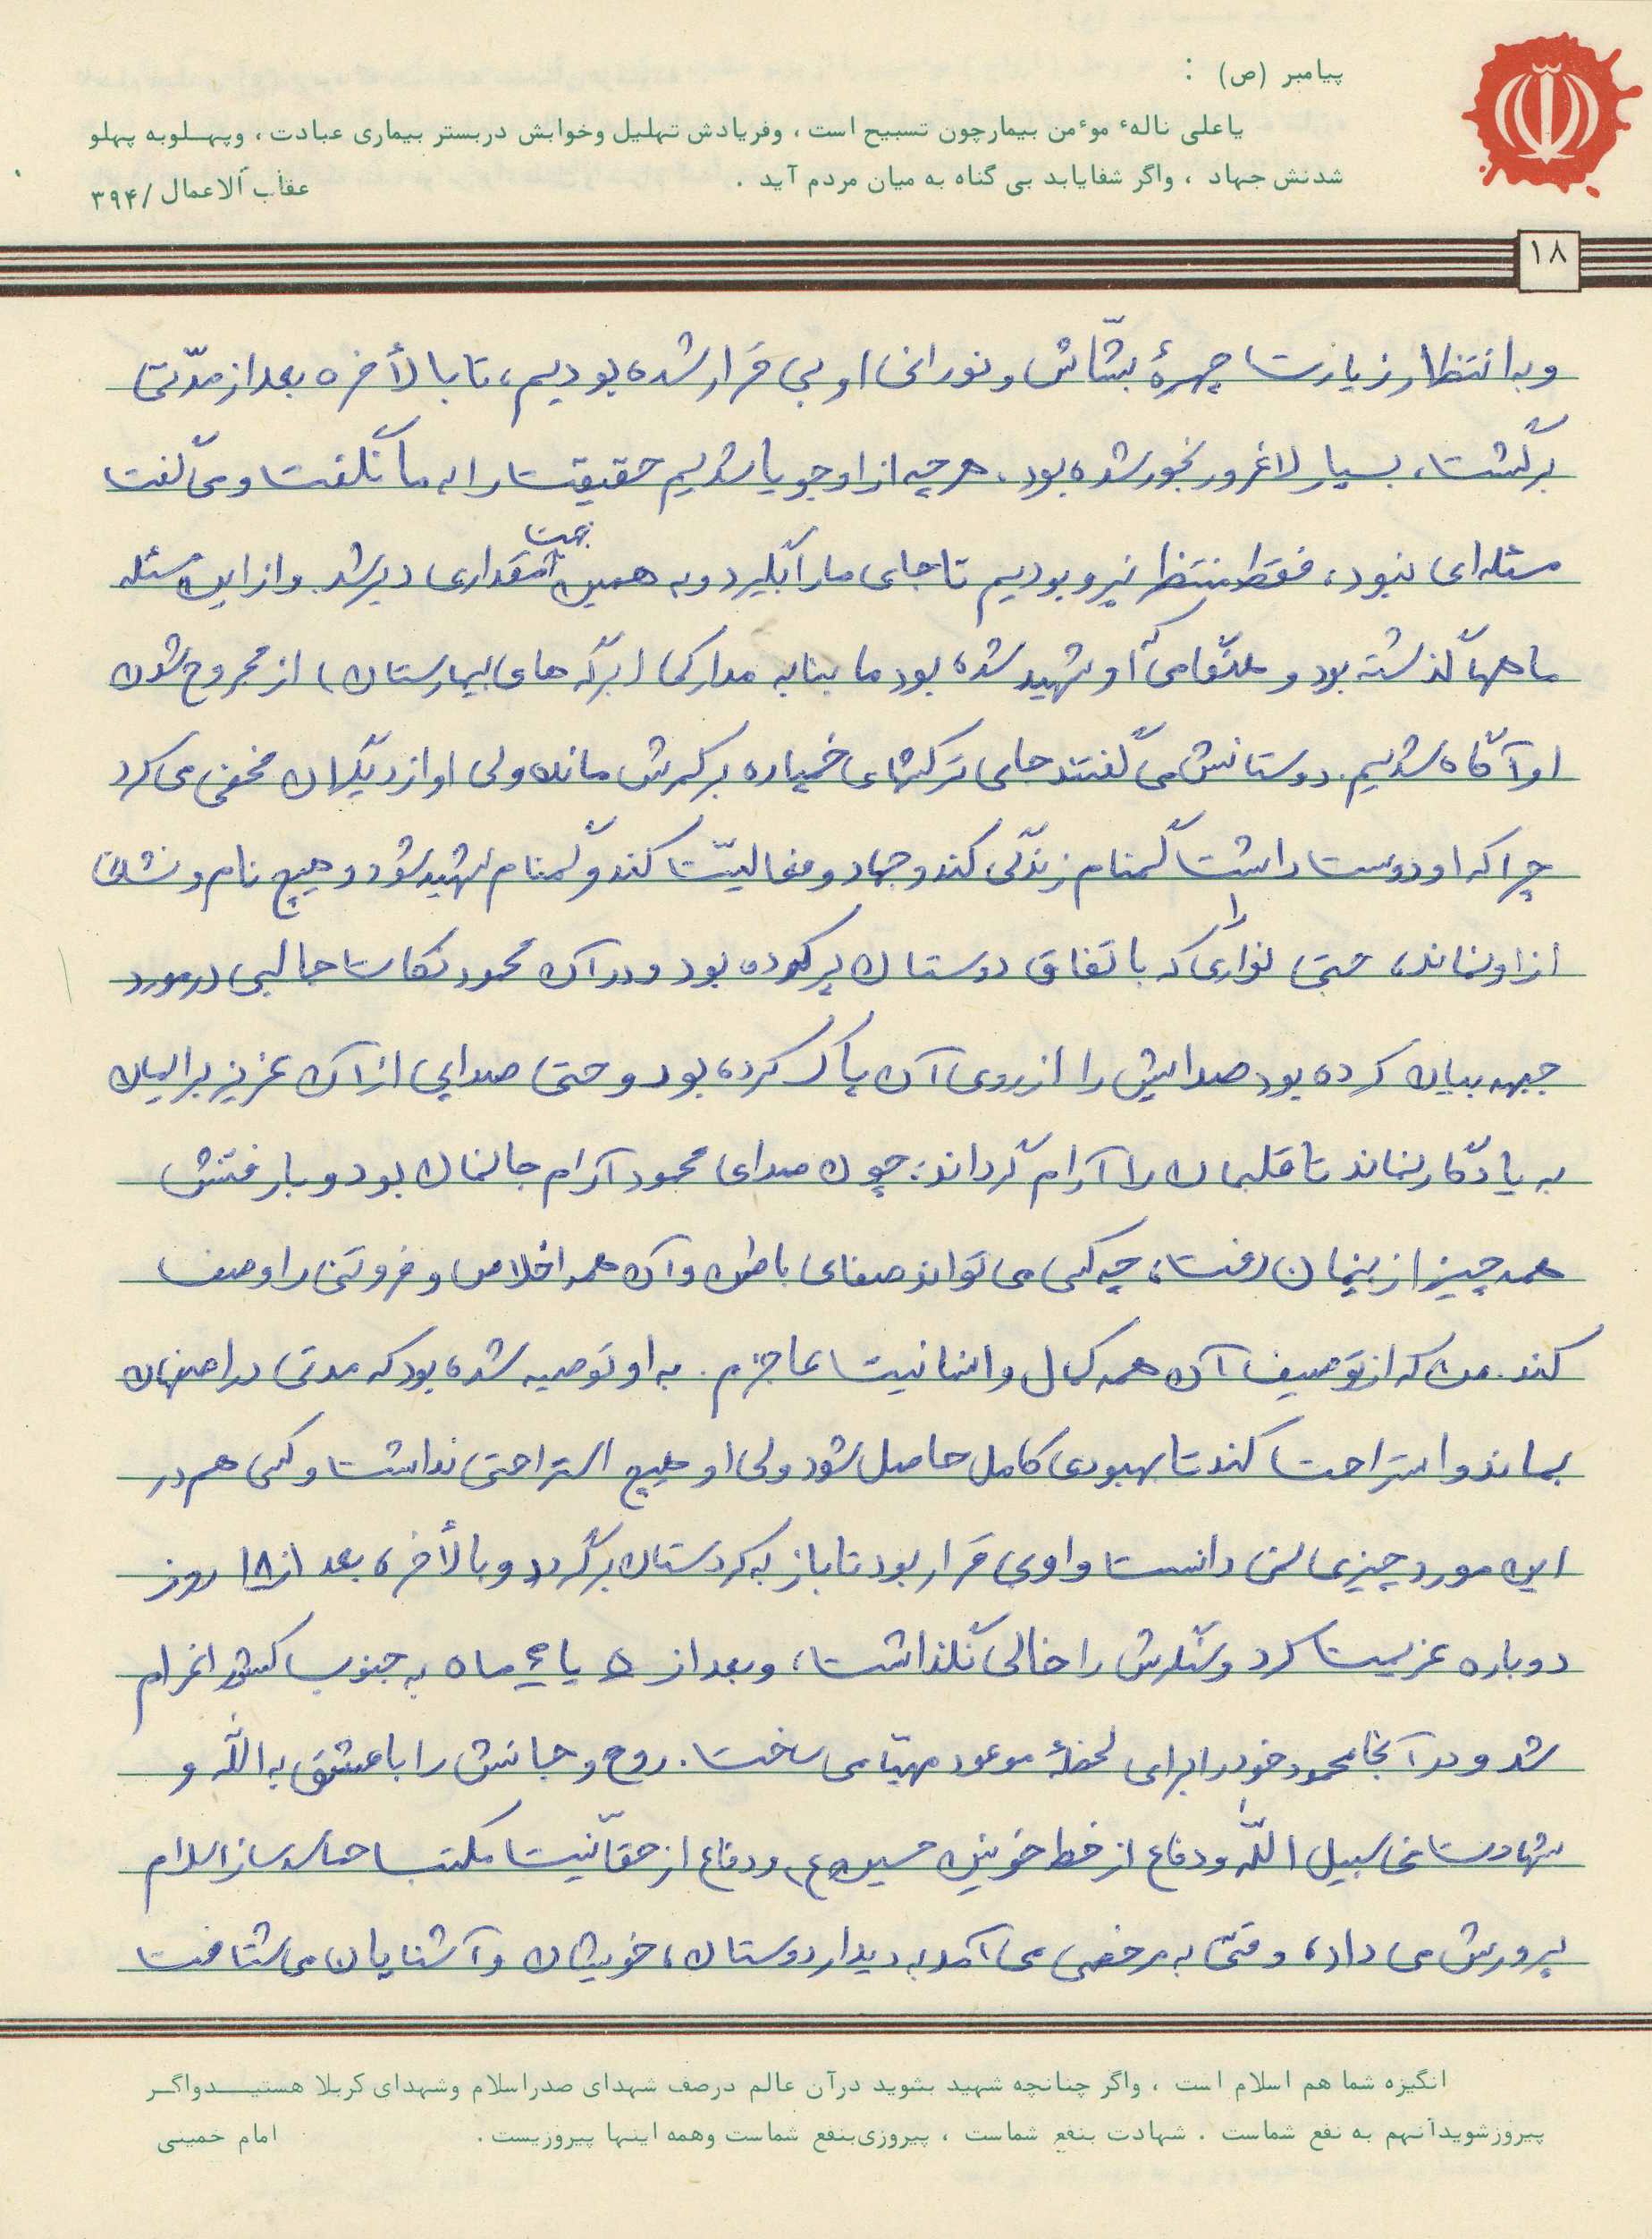 پیامبر (ص) :
یاعلی نالهٔ موٴمن بیمارچون تسبیح است ، وفریادش تهلیل وخوابش دربستر بیماری عبادت ، وپهـلوبه پهلو
شدنش جهاد ، واگر شفایابد بی گناه به میان مردم آید .
عقاب ألاعمال /۳۹۴
۱۸
وبه انتظار زیارت چهرهٔ بشّاش و نورانی او بی قرار شده بودیم، تا بالأخره بعد از مدّتی
برگشت، بسیار لاغر و رنجور شده بود. هرچه از او جویا شدیم حقیقت را به ما نگفت و می گفت
مسئله ای نبود، فقط منتظر نیرو بودیم تا جای ما را بگیرد و به همین جهت مقداری دیر شد و از این مسئله
ماهها گذشته بود و هنگامی که او شهید شده بود ما بنا به مدارکی (برگه های بیمارستان) از مجروح شدن
او آگاه شدیم. دوستانش می گفتند جای ترکشهای خمپاره بر کمرش مانده ولی او از دیگران مخفی می کرد
چرا که او دوست داشت گمنام زندگی کند و جهاد و فعالیّت کند و گمنام شهید شود و هیچ نام و نشان
از او نماند، حتی نواری را که با تفاق دوستان پر کرده بود و در آن محمود نکات جالبی در مورد
جبهه بیان کرده بود صدایش را از روی آن پاک کرده بود و حتی صدایی از آن عزیز برایمان
به یادگار نماند تا قلبمان را آرام گرداند؛ چون صدای محمود آرام جانمان بود و بارفتنش
همه چیز از بینمان رفت، چه کسی می تواند صفای باطن و آن همه اخلاص و فروتنی را وصف
کند. من که از توصیف آن همه کمال و انسانیت عاجزم. به او توصیه شده بود که مدتی در اصفهان
بماند و استراحت کند تا بهبودی کامل حاصل شود ولی او هیچ استراحتی نداشت و کسی هم در
این مورد چیزی نمی دانست و او بی قرار بود تا باز به کردستان برگردد و بالأخره بعد از ۱۸ روز
دوباره عزیمت کرد و سنگرش را خالی نگذاشت، و بعد از ۵ یا ۶ ماه به جنوب کشور اعزام
شد و در آنجا محمود خود را برای لحظهٔ موعود مهیّا می ساخت. روح و جانش را با عشق به اللّه و
شهادت فی سبیل اللّه و دفاع از خط خونین حسین (ع) و دفاع از حقّانیت مکتب حماسه ساز اسلام
پرورش می داد، وقتی به مرخصی می آمد به دیدار دوستان، خویشان و آشنایان می شتافت
انگیزه شما هم اسلام است ، واگر چنانچه شهید بشوید درآن عالم درصف شهدای صدراسلام وشهدای کربلا هستیـــدواگـر
پیروزشویدآنهم به نفع شماست . شهادت بنفع شماست ، پیروزی‌بنفع شماست وهمه اینها پیروزیست .
امام خمینی